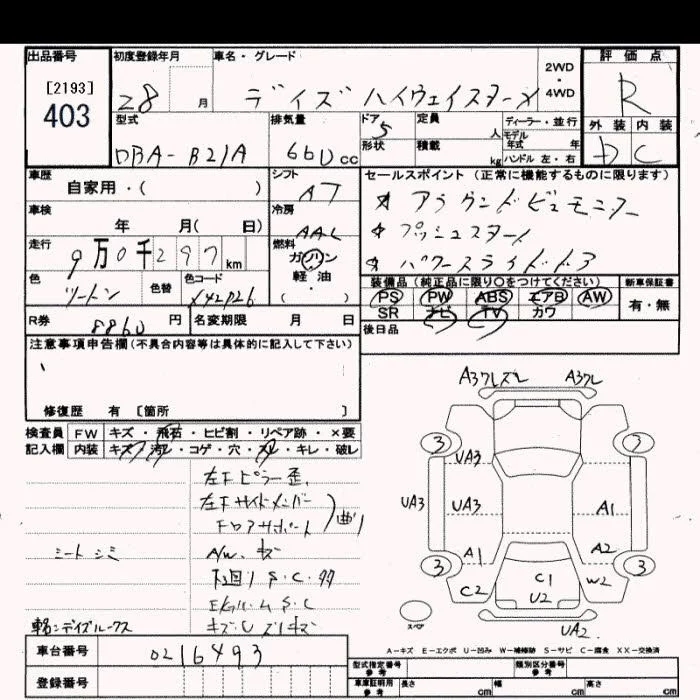 出品番号 初度登録年月 車名・グレード 2WD・4WD 評価点
[2193]
403
28 月 デイズ ハイウェイスター R
型式 排気量 ドア 5 定員 人 ディーラー・並行 外装 内装
DBA-B21A 660cc 形状 積載 kg モデル年式 年 ハンドル 左・右 D C
車歴 シフト セールスポイント(正常に機能するものに限ります)
自家用・( ) AT ★ アラウンドビュモニター
車検 冷房 ★ プッシュスタート
年 月( 日) AAC ★ パワースライドドア
走行 燃料
9万0千297km ガソリン
色 色替 色コード 軽油 装備品(純正品に限り○をつけてください) 新車保証書
ツートン X42P26 ・( ) PS PW ABS エアB AW 有・無
SR ナビ TV カワ
R券 8860 円 名変期限 月 日 後日品
注意事項申告欄(不具合内容等は具体的に記入して下さい)
修復歴 有 [箇所 ]
検査員 FW キズ・飛石・ヒビ割・リペア跡・×要
記入欄 内装 キズ・汚レ・コゲ・穴・スレ・キレ・破レ
左Fピラー歪
左Fサイドメンバー
フロアサポート 曲り
シートシミ A/W キズ
下廻り S・C・
S・C
車名:デイズルークス
A3ワレズレ A3ワレ
3 3
UA3
UA3 UA3 A1
A1 A2
3 3
C2 C1 W2
U2
スペア UA2
A-キズ E-エクボ U-凹み W-補修跡 S-サビ C-腐食 XX-交換済
車台番号 0216493
登録番号
型式指定番号 参考 類別区分番号 参考
車庫証明用 参考 長さ cm 幅 cm 高さ cm